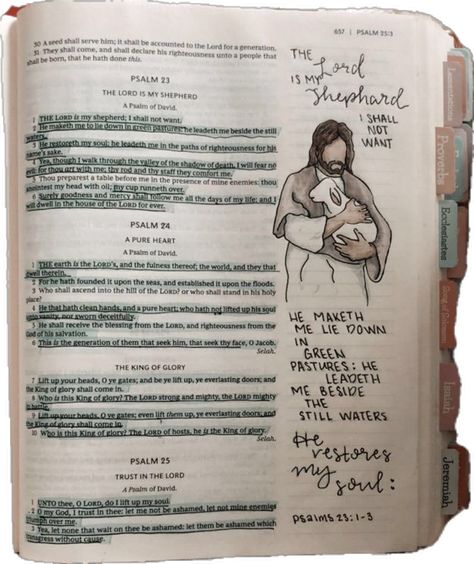 657 | PSALM 25:3
30 A seed shall serve him; it shall be accounted to the Lord for a generation.
31 They shall come, and shall declare his righteousness unto a people that
shall be born, that he hath done this.
PSALM 23
THE LORD IS MY SHEPHERD
A Psalm of David.
1 THE LORD is my shepherd; I shall not want.
2 He maketh me to lie down in green pastures: he leadeth me beside the still
waters.
3 He restoreth my soul: he leadeth me in the paths of righteousness for his
name's sake.
4 Yea, though I walk through the valley of the shadow of death, I will fear no
evil: for thou art with me; thy rod and thy staff they comfort me.
5 Thou preparest a table before me in the presence of mine enemies: thou
anointest my head with oil; my cup runneth over.
6 Surely goodness and mercy shall follow me all the days of my life: and I
will dwell in the house of the LORD for ever.
PSALM 24
A PURE HEART
A Psalm of David.
1 THE earth is the LORD's, and the fulness thereof; the world, and they that
dwell therein.
2 For he hath founded it upon the seas, and established it upon the floods.
3 Who shall ascend into the hill of the LORD? or who shall stand in his holy
place?
4 He that hath clean hands, and a pure heart; who hath not lifted up his soul
unto vanity, nor sworn deceitfully.
5 He shall receive the blessing from the LORD, and righteousness from the
God of his salvation.
6 This is the generation of them that seek him, that seek thy face, O Jacob.
Selah.
THE KING OF GLORY
7 Lift up your heads, O ye gates; and be ye lift up, ye everlasting doors; and
the King of glory shall come in.
8 Who is this King of glory? The LORD strong and mighty, the LORD mighty
in battle.
9 Lift up your heads, O ye gates; even lift them up, ye everlasting doors; and
the King of glory shall come in.
10 Who is this King of glory? The LORD of hosts, he is the King of glory.
Selah.
PSALM 25
TRUST IN THE LORD
A Psalm of David.
1 UNTO thee, O LORD, do I lift up my soul.
2 O my God, I trust in thee: let me not be ashamed, let not mine enemies
triumph over me.
3 Yea, let none that wait on thee be ashamed: let them be ashamed which
transgress without cause.
THE
Lord
IS MY
Shephard
I SHALL
NOT
WANT
HE MAKETH
ME LIE DOWN
IN
GREEN
PASTURES: HE
LEADETH
ME BESIDE
THE
STILL WATERS
He
restores
my
soul:
Psalms 23:1-3
Lamentations
Proverbs
Ecclesiastes
Song of Solomon
Isaiah
Jeremiah